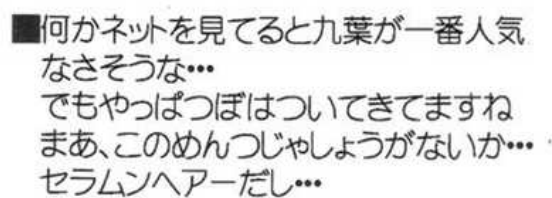 ■何かネットを見てると九葉が一番人気
なさそうな…
でもやっぱつぼはついてきてますね
まあ、このめんつじゃしょうがないか…
セラムンヘアーだし…